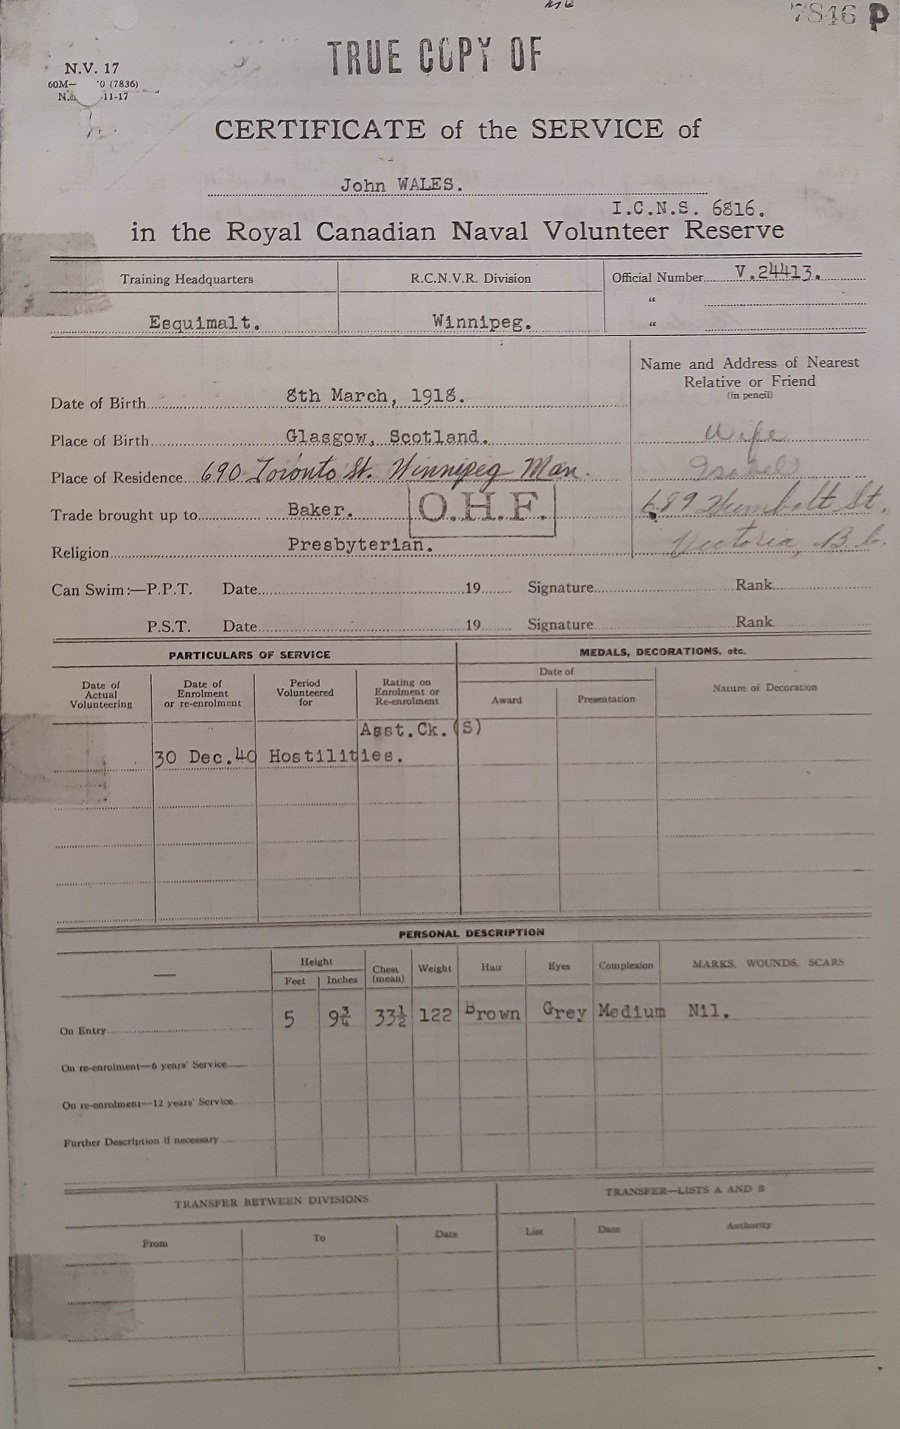 7846 P
TRUE COPY OF
N.V. 17
(7836)
11-17
CERTIFICATE of the SERVICE of
John WALES.
I.C.N.S. 6816.
in the Royal Canadian Naval Volunteer Reserve
Training Headquarters R.C.N.V.R. Division Official Number V.24413.
"
Esquimalt. Winnipeg. "
Name and Address of Nearest
Relative or Friend
(in pencil)
Date of Birth 8th March, 1918.
Place of Birth Glasgow, Scotland. Wife
Place of Residence 690 Toronto St. Winnipeg Man. Isabel
Trade brought up to Baker. O.H.F. 689 Humbolt St.
Religion Presbyterian. Victoria, B.C.
Can Swim:—P.P.T. Date 19 Signature Rank
P.S.T. Date 19 Signature Rank
PARTICULARS OF SERVICE MEDALS, DECORATIONS, etc.
Date of Actual Volunteering Date of Enrolment or re-enrolment Period Volunteered for Rating on Enrolment or Re-enrolment Date of Award Presentation Nature of Decoration
Asst.Ck.(S)
30 Dec.40 Hostilities.
PERSONAL DESCRIPTION
— Height Feet Inches Chest (mean) Weight Hair Eyes Complexion MARKS, WOUNDS, SCARS
On Entry 5 9¾ 33½ 122 Brown Grey Medium Nil.
On re-enrolment—6 years' Service
On re-enrolment—12 years' Service
Further Description if necessary
TRANSFER BETWEEN DIVISIONS TRANSFER—LISTS A AND B
From To Date List Date Authority